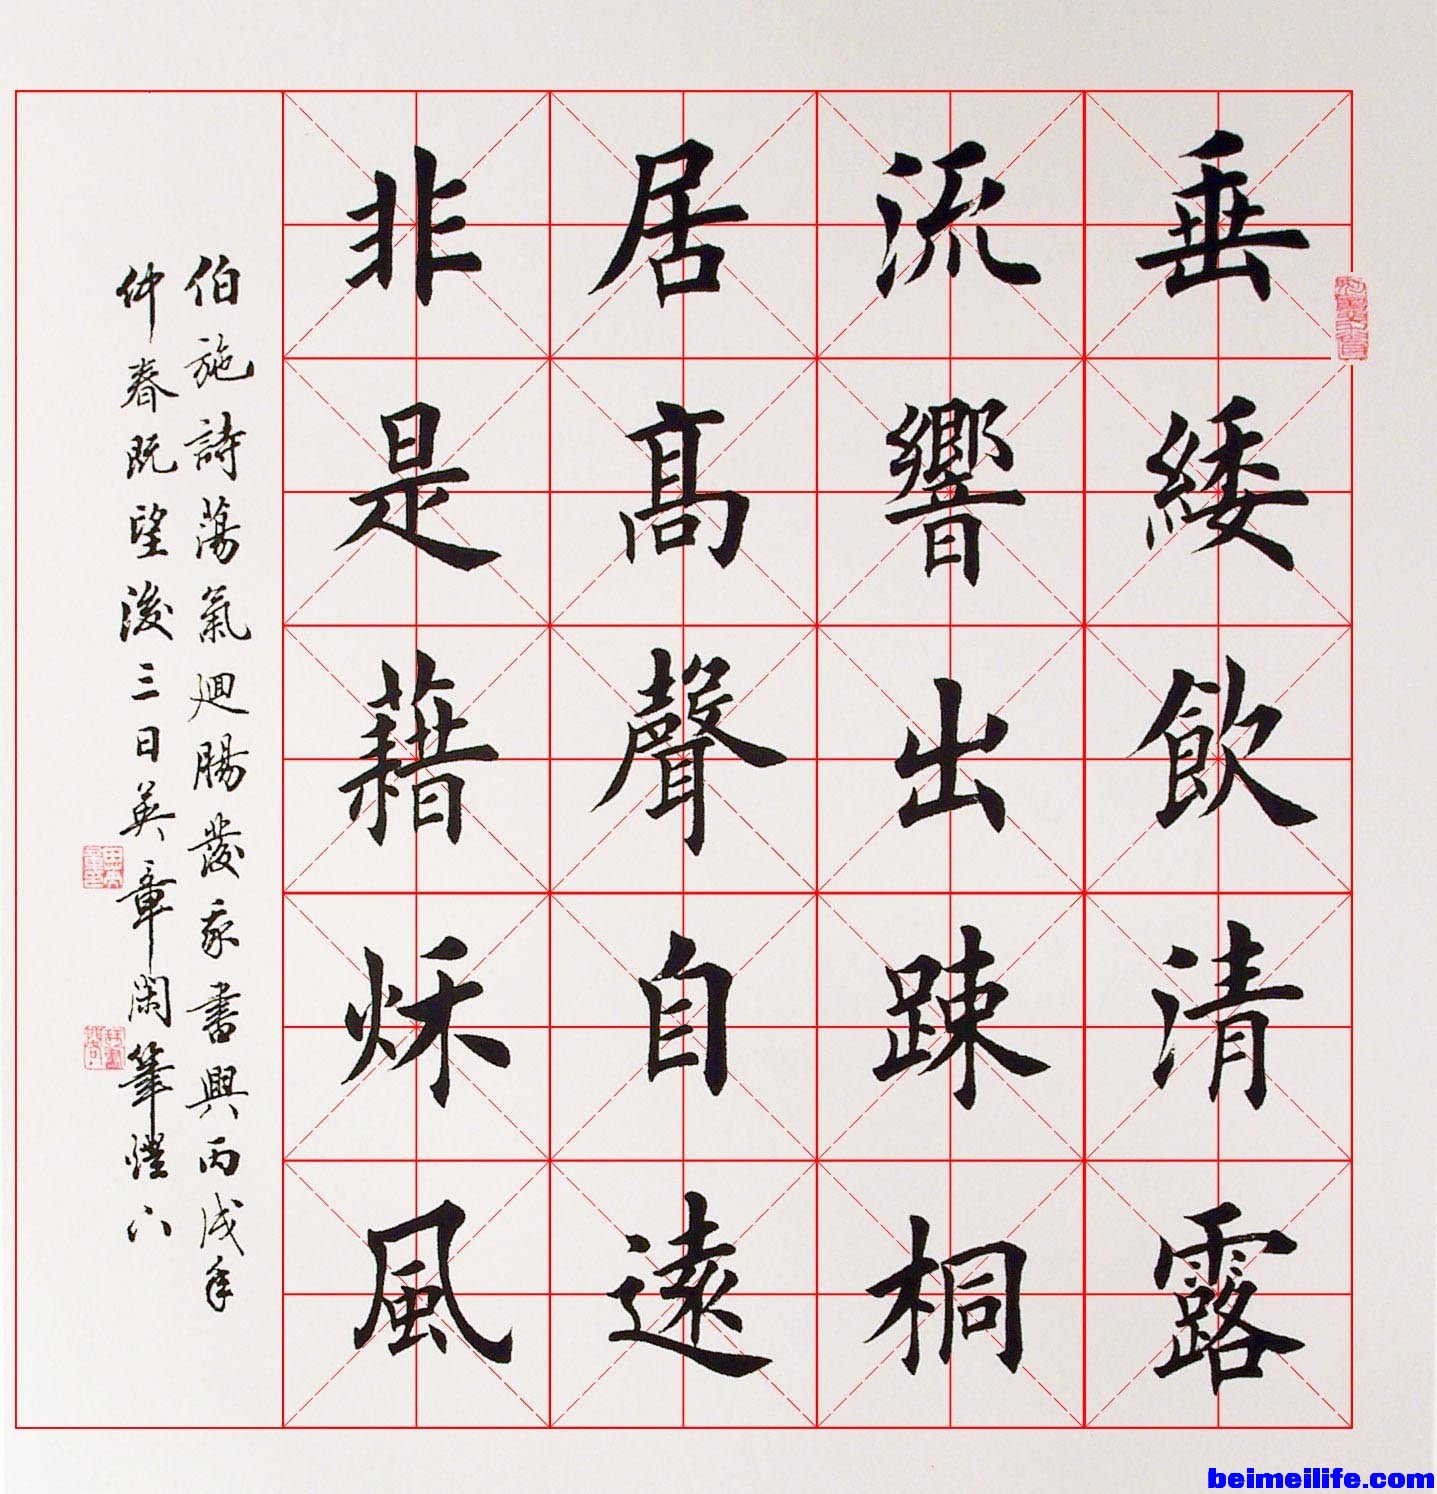 垂緌飲清露
流響出踈桐
居高聲自遠
非是藉秌風
伯施詩蕩氣迴腸發我書興丙戌年
仲春既望後三日英章閑筆
beimeilife.com